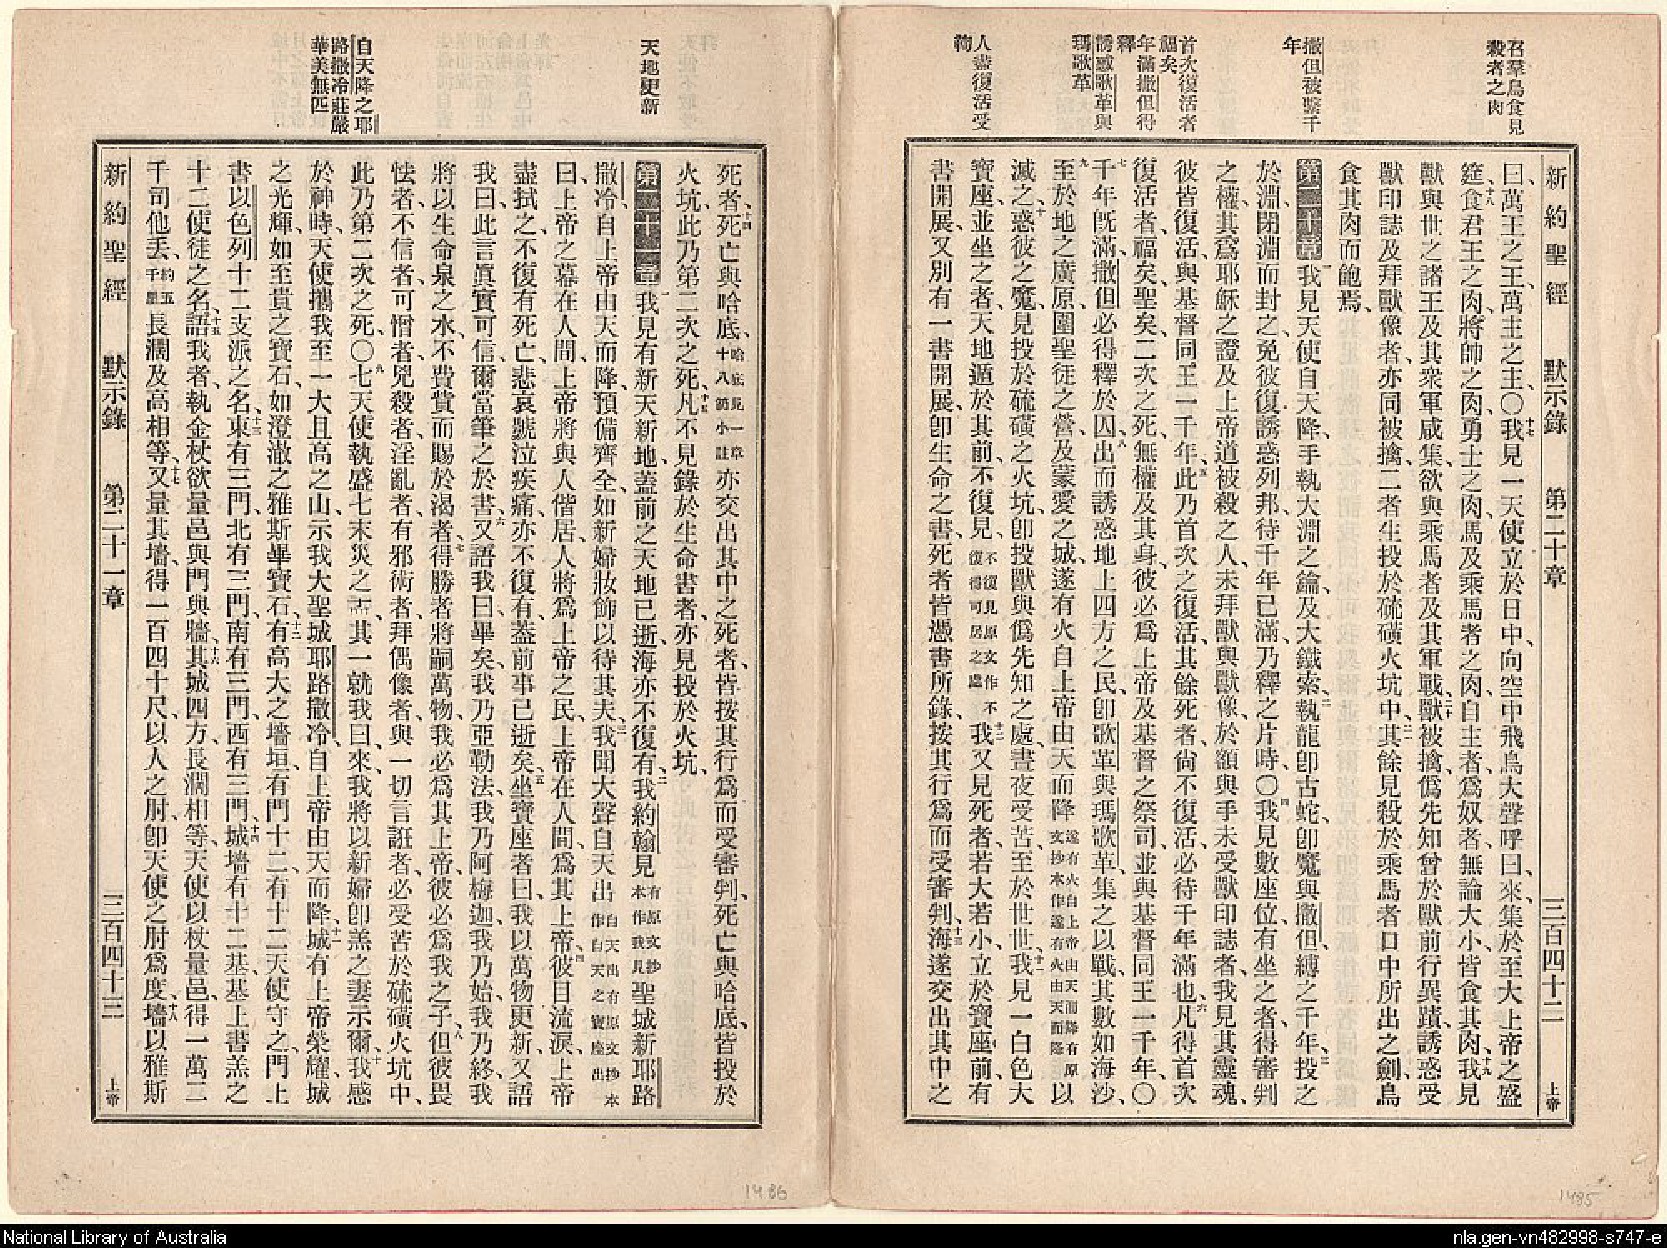 召羣鳥食見
殺者之肉
撒但被繫千
年
首次復活者
福矣
年滿撒但得
釋
誘惑歌革與
瑪歌革
人盡復活受
新約聖經 默示錄 第二十章 三百四十二 上帝
曰、萬王之王、萬主之主、〇十七我見一天使立於日中、向空中飛鳥大聲呼曰、來、集於至大上帝之盛
筵、十八食君王之肉、將帥之肉、勇士之肉、馬及乘馬者之肉、自主者爲奴者、無論大小、皆食其肉、十九我見
獸與世之諸王及其衆軍咸集、欲與乘馬者及其軍戰、二十獸被擒、僞先知曾於獸前行異蹟、誘惑受
獸印誌及拜獸像者、亦同被擒、二者生投於硫磺火坑中、其餘見殺於乘馬者口中所出之劍、鳥
食其肉而飽焉、
第二十章 一我見天使自天降、手執大淵之鑰、及大鐵索、二執龍、卽古蛇、卽魔與撒但、縛之千年、三投之
於淵、閉淵而封之、免彼復誘惑列邦、待千年已滿、乃釋之片時、〇四我見數座位、有坐之者、得審判
之權、其爲耶穌之證、及上帝道被殺之人、未拜獸與獸像、於額與手未受獸印誌者、我見其靈魂、
彼皆復活、與基督同王一千年、五此乃首次之復活、其餘死者、尙不復活、必待千年滿也、六凡得首次
復活者、福矣、聖矣、二次之死無權及其身、彼必爲上帝及基督之祭司、並與基督同王一千年、〇
七千年旣滿、撒但必得釋於囚、八出而誘惑地上四方之民、卽歌革與瑪歌革、集之以戰、其數如海沙、
九至於地之廣原、圍聖徒之營、及蒙愛之城、遂有火自上帝由天而降遂有火自上帝由天而降有原文抄本作遂有火由天而降以
滅之、十惑彼之魔、見投於硫磺之火坑、卽投獸與僞先知之處、晝夜受苦、至於世世、十一我見一白色大
寶座、並坐之者、天地遁於其前、不復見、不復見原文作不復得可居之處十二我又見死者、若大若小、立於寶座前、有
書開展、又別有一書開展、卽生命之書、死者皆憑書所錄、按其行爲而受審判、十三海遂交出其中之
1485
天地更新
自天降之耶
路撒冷莊嚴
華美無匹
死者、十四死亡與哈底、哈底見一章十八節小註亦交出其中之死者、皆按其行爲而受審判、死亡與哈底、皆投於
火坑、此乃第二次之死、十五凡不見錄於生命書者、亦見投於火坑、
第二十一章 一我見有新天新地、蓋前之天地已逝、海亦不復有、二我約翰見有原文抄本作我見聖城新耶路
撒冷、自上帝由天而降、預備齊全、如新婦妝飾以待其夫、三我聞大聲自天出自天出有原文抄本作自天之寶座出
曰、上帝之幕在人間、上帝將與人偕居、人將爲上帝之民、上帝在人間、爲其上帝、四彼目流淚、上帝
盡拭之、不復有死亡、悲哀號泣疾痛、亦不復有、蓋前事已逝矣、五坐寶座者曰、我以萬物更新、又語
我曰、此言眞實可信、爾當筆之於書、六又語我曰、畢矣、我乃亞勒法、我乃阿梅迦、我乃始、我乃終、我
將以生命泉之水、不費貲而賜於渴者、七得勝者將嗣萬物、我必爲其上帝、彼必爲我之子、八但彼畏
怯者、不信者、可憎者、兇殺者、淫亂者、有邪術者、拜偶像者、與一切言誑者、必受苦於硫磺火坑中、
此乃第二次之死、〇九七天使執盛七末災之盂、其一就我曰、來、我將以新婦、卽羔之妻示爾、十我感
於神時、天使攜我至一大且高之山、示我大聖城耶路撒冷、自上帝由天而降、十一城有上帝榮耀、城
之光輝、如至貴之寶石、如澄澈之雅斯畢寶石、十二有高大之墻垣、有門十二、有十二天使守之、門上
書以色列十二支派之名、十三東有三門、北有三門、南有三門、西有三門、十四城墻有十二基、基上書羔之
十二使徒之名、十五語我者、執金杖、欲量邑與門與牆、十六其城四方、長濶相等、天使以杖量邑、得一萬二
千司他丢、約五千里長濶及高相等、十七又量其墻、得一百四十尺、以人之肘、卽天使之肘爲度、十八墻以雅斯
新約聖經 默示錄 第二十一章 三百四十三 上帝
1486
National Library of Australia
nla.gen-vn482998-s747-e